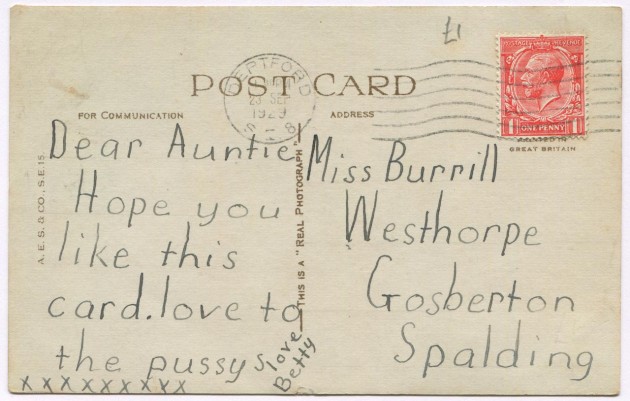 £1
POSTAGE REVENUE
DEPTFORD
23 SEP
1929
S.E.8
ONE PENNY
POST CARD
FOR COMMUNICATION
ADDRESS
GREAT BRITAIN
A. E. S. & CO., S.E. 15.
THIS IS A "REAL PHOTOGRAPH"
Dear Auntie
Hope you
like this
card. love to
the pussys
love
Betty
x x x x x x x x x
Miss Burrill
Westhorpe
Gosberton
Spalding